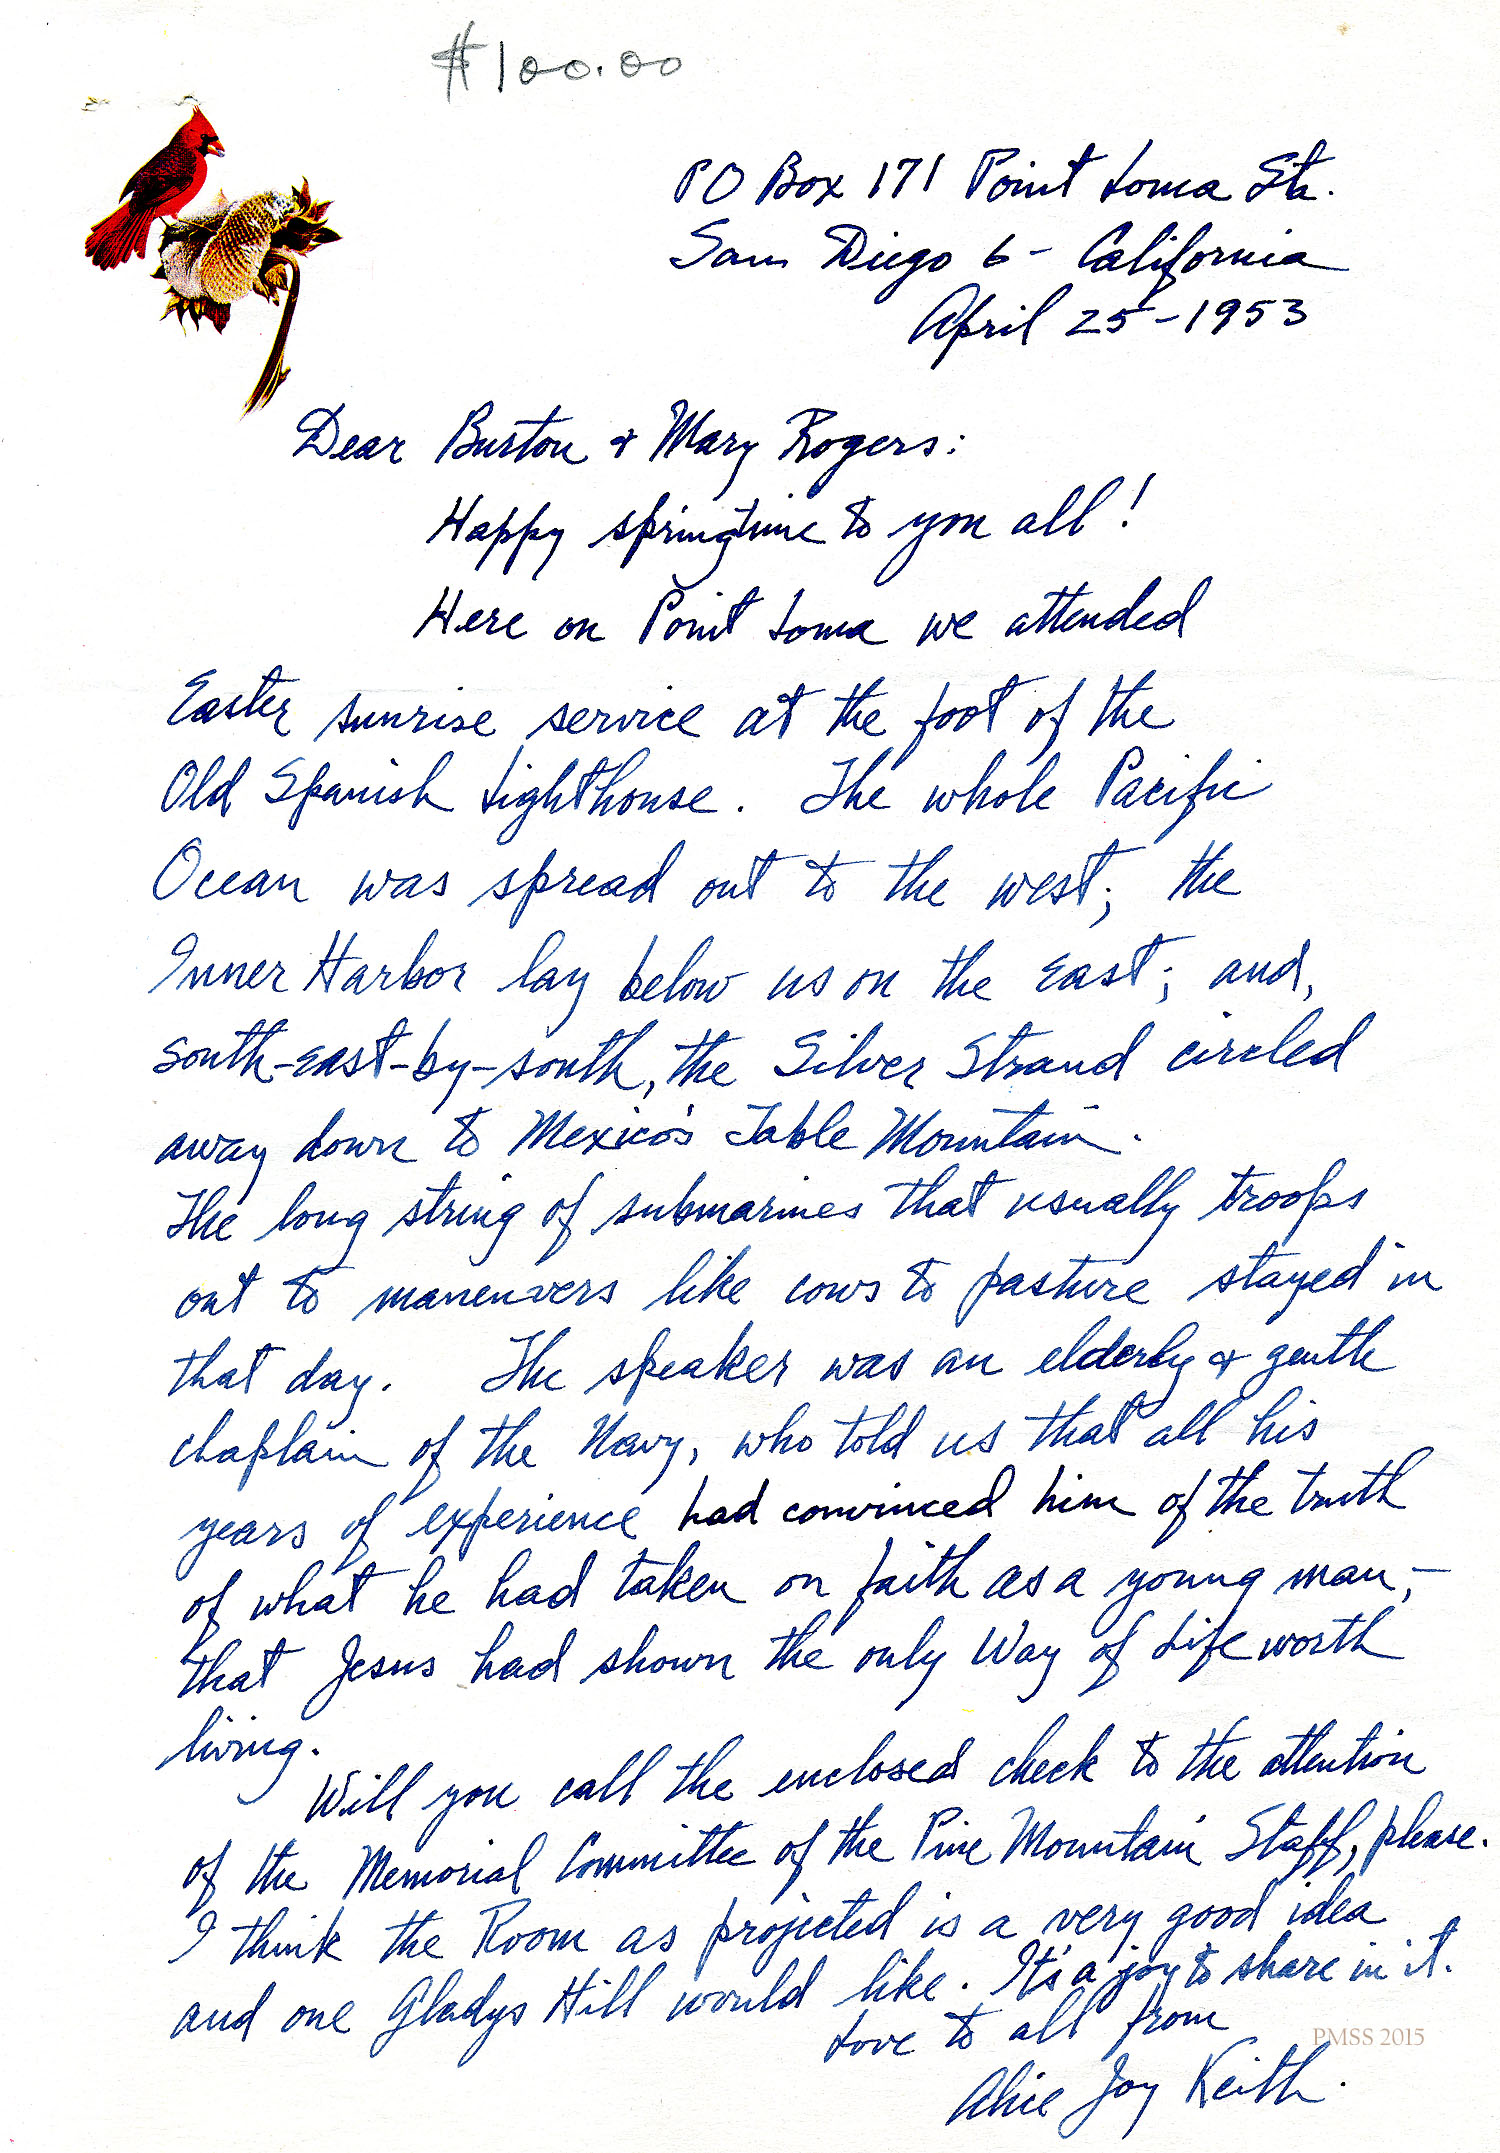 $100.00
PO Box 171 Point Loma Sta.
San Diego 6 - California
April 25-1953
Dear Burton & Mary Rogers:
Happy springtime to you all!
Here on Point Loma we attended
Easter sunrise service at the foot of the
Old Spanish Lighthouse. The whole Pacific
Ocean was spread out to the west; the
Inner Harbor lay below us on the East; and,
south-east-by-south, the Silver Strand circled
away down to Mexico's Table Mountain.
The long string of submarines that usually troops
out to maneuvers like cows to pasture stayed in
that day. The speaker was an elderly & gentle
chaplain of the Navy, who told us that all his
years of experience had convinced him of the truth
of what he had taken on faith as a young man, -
that Jesus had shown the only Way of Life worth
living.
Will you call the enclosed check to the attention
of the Memorial Committee of the Pine Mountain Staff, please.
I think the Room as projected is a very good idea
and one Gladys Hill would like. It's a joy to share in it.
Love to all from
Alice Joy Keith.
PMSS 2015